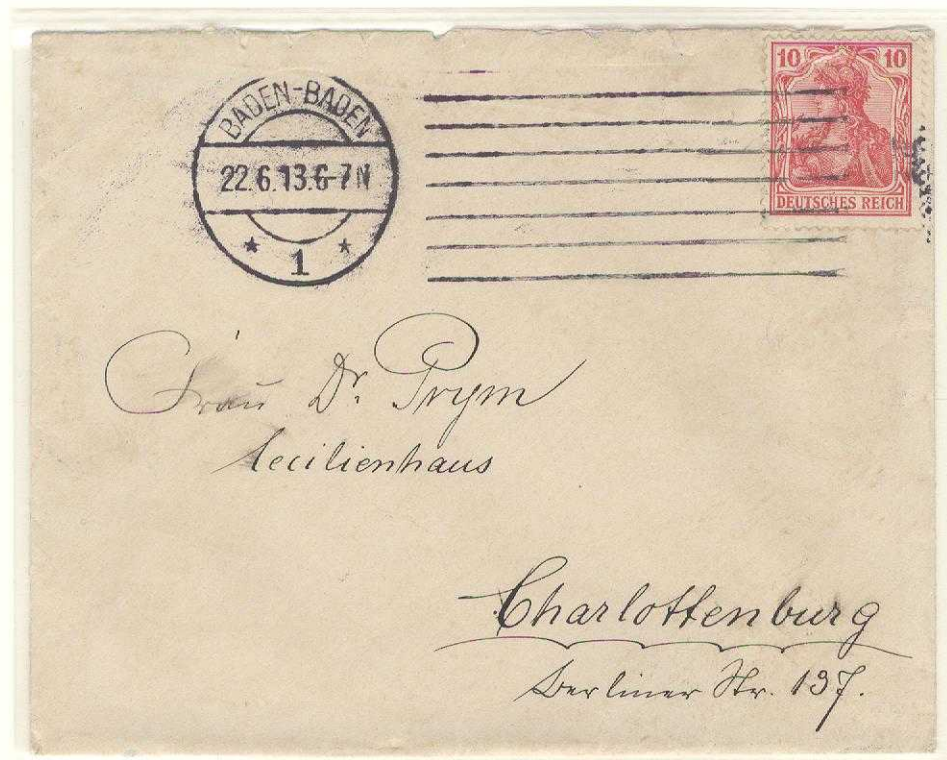 BADEN-BADEN
22.6.13.6-7 N
* 1 *
10 10
DEUTSCHES REICH
Frau Dr. Prym
Cecilienhaus
Charlottenburg
Berliner Str. 137.